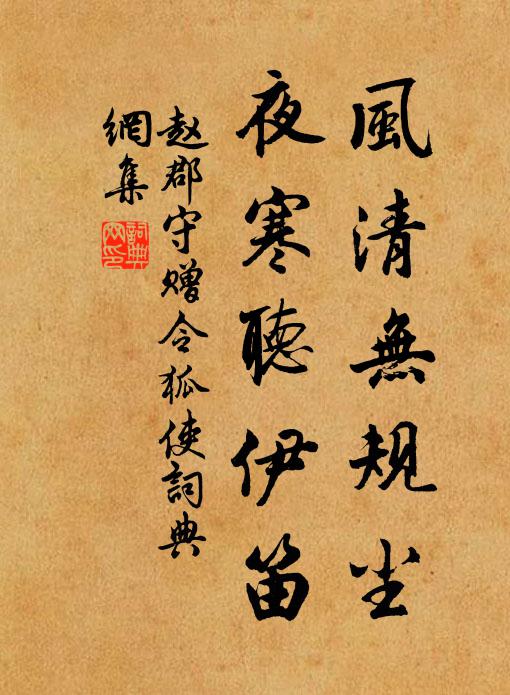 風清無規尘
夜寒聽伊笛
赵郡守赠令狐使詞典
網集
詞典
网印